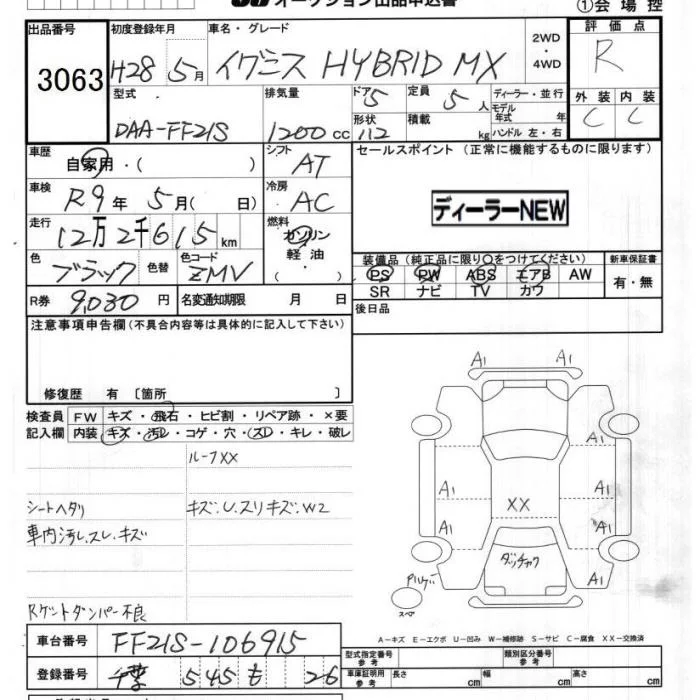 オークション出品申込書
①会場控
出品番号 3063
初度登録年月 H28 5月
車名・グレード イグニス HYBRID MX
2WD・4WD
評価点 R
型式 DAA-FF21S
排気量 1200cc
ドア 5
形状 112
定員 5人
積載 kg
ディーラー・並行
モデル年式 年
ハンドル 左・右
外装 C 内装 C
車歴 自家用・( )
シフト AT
セールスポイント (正常に機能するものに限ります)
車検 R9年 5月( 日)
冷房 AC
ディーラーNEW
走行 12万2千615km
燃料 ガソリン 軽油・( )
色 ブラック 色替
色コード ZMV
装備品(純正品に限り○をつけてください)
PS PW ABS エアB AW
SR ナビ TV カワ
新車保証書 有・無
R券 9,030円
名変通知期限 月 日
後日品
注意事項申告欄(不具合内容等は具体的に記入して下さい)
修復歴 有 〔箇所 〕
検査員記入欄
FW キズ・飛石・ヒビ割・リペア跡・×要
内装 キズ・汚レ・コゲ・穴・スレ・キレ・破レ
ルーフXX
シートヘタリ
キズ.U.スリキズ.W2
車内汚レ.スレ.キズ
Rゲートダンパー不良
A1 A1
A1
A1 A1
XX
A1 A1
ダッチャク
A1
スペア
A-キズ E-エクボ U-凹み W-補修跡 S-サビ C-腐食 XX-交換済
車台番号 FF21S-106915
登録番号 千葉 545 も 26
型式指定番号 参考
類別区分番号 参考
車庫証明用 参考
長さ cm 幅 cm 高さ cm